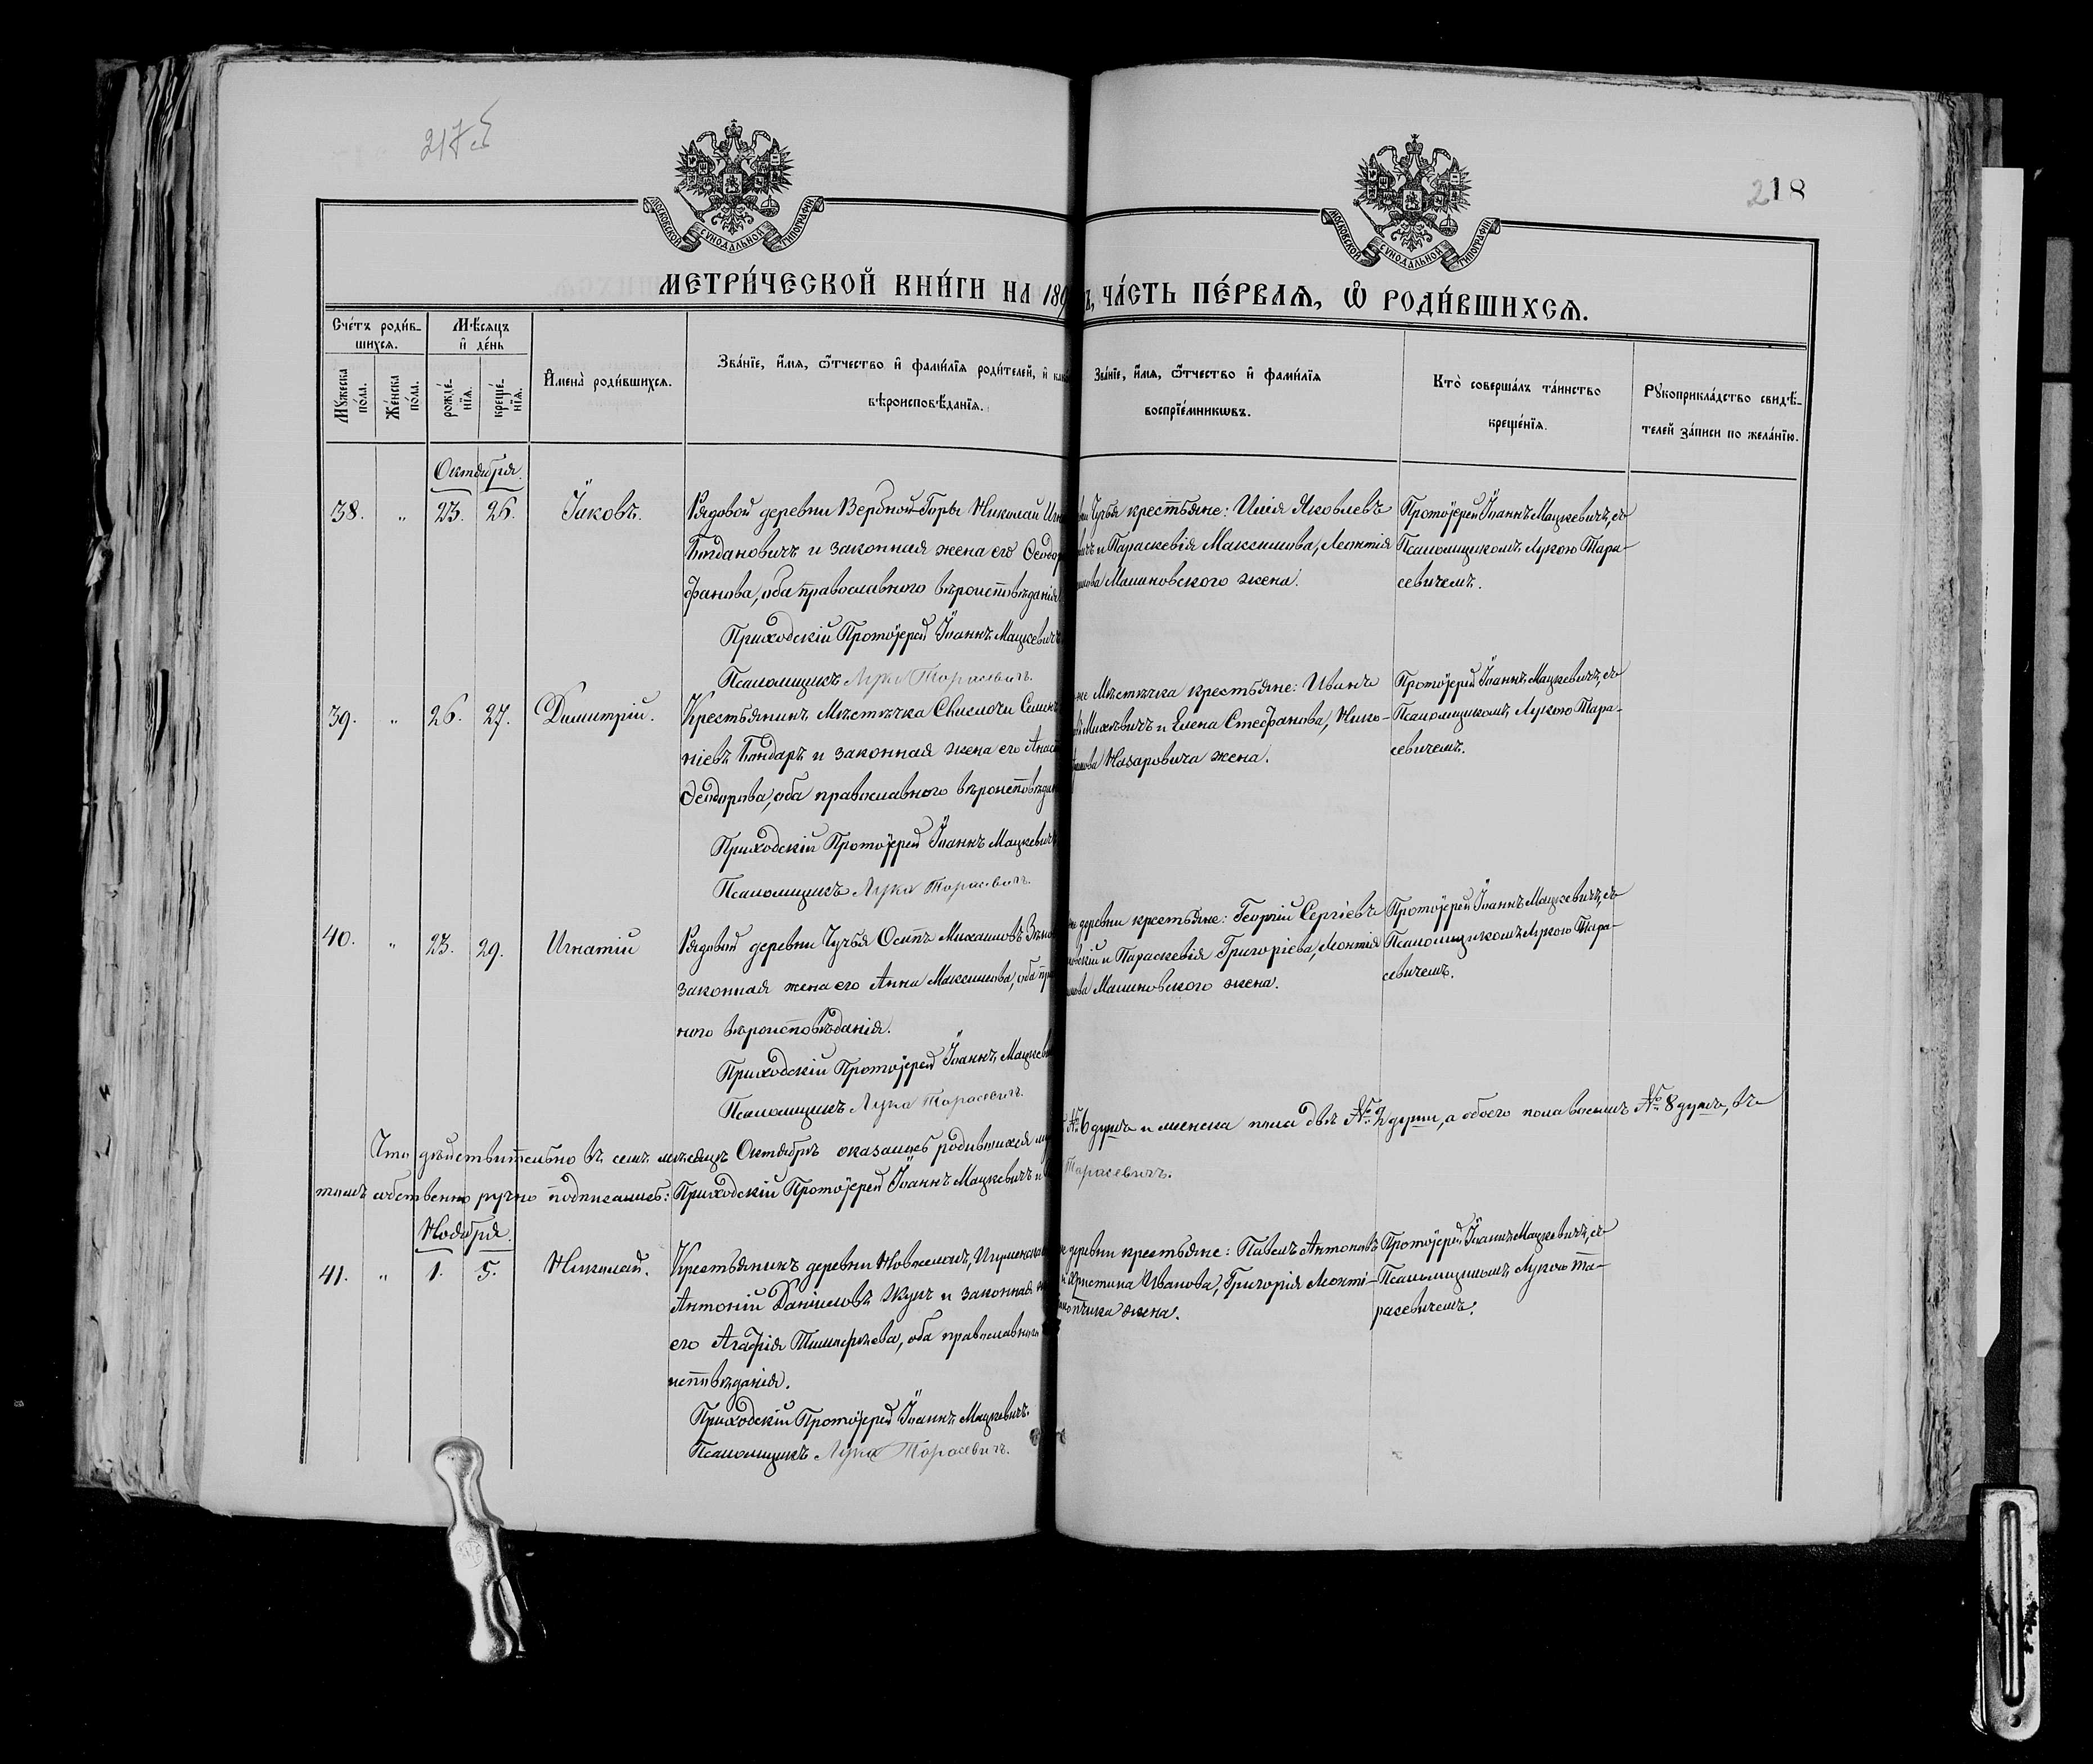 217 об
218
МОСКОВСКОЙ СѴНОДАЛЬНОЙ ТИПОГРАФІИ
МОСКОВСКОЙ СѴНОДАЛЬНОЙ ТИПОГРАФІИ
МЕТРИ́ЧЕСКОЙ КНИ́ГИ НА 189 ЧА́СТЬ ПЕ́РВАѦ, Ѽ РОДИ́ВШИХСѦ.
Сче́тъ роди́в-
шихсѧ.
Мѣ́сѧцъ
и҆ де́нь
Мꙋ́жеска по́ла.
Же́нска по́ла.
рожде́-нїѧ.
креще́-нїѧ.
И҆мена̀ роди́вшихсѧ.
Зва́нїе, и҆́мѧ, ѻ҆́тчество и҆ фами́лїѧ роди́телей, и҆
вѣроисповѣ́данїѧ.
Зва́нїе, и҆́мѧ, ѻ҆́тчество и҆ фами́лїѧ
воспрїе́мникѡвъ.
Кто̀ соверша́лъ та́инство
креще́нїѧ.
Рꙋкоприкла́дство свидѣ́-
телей за́писи по жела́нїю.
Октября.
38. " 23. 26. Іаковъ.
Рядовой деревни Вербной-Горы Николай
Богдановичъ и законная жена его
фанова, оба православнаго вѣроисповѣданія
Приходскій Протоіерей Іоаннъ Мацкевичъ
Псаломщикъ Лука Тарасевичъ.
Чучья крестьяне: Илія Яковлевъ
и Параскевія Максимова, Леонтія
Малиновского жена.
Протоіерей Іоаннъ Мацкевичъ, съ
Псаломщикомъ Лукою Тара-
севичемъ.
39. " 26. 27. Димитрій.
Крестьянинъ Мѣстечка Свислочи
ніевъ Бондаръ и законная жена его
Ѳеодорова, оба православного
Приходскій Протоіерей Іоаннъ Мацкевичъ
Псаломщикъ Лука Тарасевичъ.
Мѣстечка крестьяне: Иванъ
Михѣевичъ и Елена Стефанова, Нико-
Назаровича жена.
Протоіерей Іоаннъ Мацкевичъ, съ
Псаломщикомъ Лукою Тара-
севичемъ.
40. " 23. 29. Игнатій
Рядовой деревни Чучья Осипъ Михаиловъ
законная жена его Анна Максимова, оба
ного вѣроисповѣданія.
Приходскій Протоіерей Іоаннъ
Псаломщикъ Лука Тарасевичъ.
деревни крестьяне: Георгій Сергіевъ
и Параскевія Григоріева, Леонтія
Малиновского жена.
Протоіерей Іоаннъ Мацкевичъ, съ
Псаломщикомъ Лукою Тара-
севичемъ.
Что дѣйствительно въ семъ мѣсяцѣ Октябрѣ оказалось родившихся № 6 душъ и женска пола двѣ № 2 души, а обоего пола восемь № 8 душъ, въ
томъ собственно ручно подписались: Приходскій Протоіерей Іоаннъ Мацкевичъ и Тарасевичъ.
Ноября.
41. " 1. 5. Николай.
Крестьянинъ деревни
Антоній Даніиловъ Жукъ и законная
его Агафія Тимофеева, оба православного
исповѣданія.
Приходскій Протоіерей Іоаннъ Мацкевичъ.
Псаломщикъ Лука Тарасевичъ.
деревни крестьяне: Павелъ Антоновъ
Христина Иванова, Григорія Леонті-
жена.
Протоіерей Іоаннъ Мацкевичъ, съ
Псаломщикомъ Лукою Та-
расевичемъ.